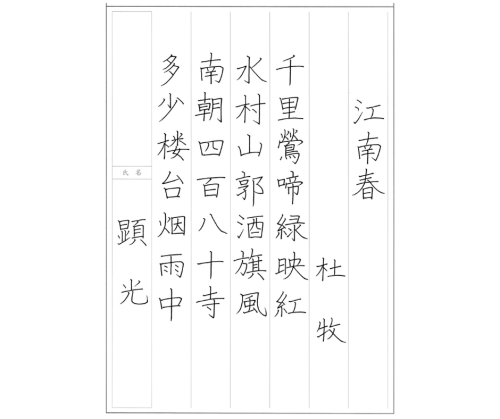 江南春
杜牧
千里鶯啼緑映紅
水村山郭酒旗風
南朝四百八十寺
多少楼台烟雨中
氏名
顕光